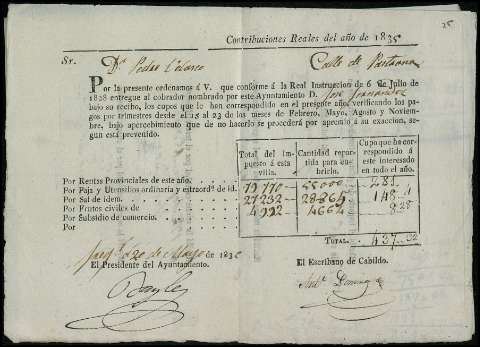 25
Contribuciones Reales del año de 1835
Sr. Dn. Pedro Velasco Calle de
Por la presente ordenamos á V. que conforme á la Real Instruccion de 6 de Julio de
1828 entregue al cobrador nombrado por este Ayuntamiento D. José
bajo su recibo, los cupos que le han correspondido en el presente año, verificando los pa-
gos por trimestres desde el 15 al 23 de los meses de Febrero, Mayo, Agosto y Noviem-
bre, bajo apercibimiento que de no hacerlo se procederá por apremio á su exaccion, se-
gun está prevenido.
Total del Im-
puesto á esta
villa.
Cantidad repar-
tida para cu-
brirlo.
Cupo que ha cor-
respondido á
este interesado
en todo el año.
Por Rentas Provinciales de este año. 55000 281
Por Paja y Utensilios ordinaria y estraordª. de id. 27232 28864 148
Por Sal de idem. 4664
Por Frutos civiles de
Por Subsidio de comercio.
Por
TOTAL. 437
20 de Mayo de 183
El Presidente del Ayuntamiento.
El Escribano de Cabildo.